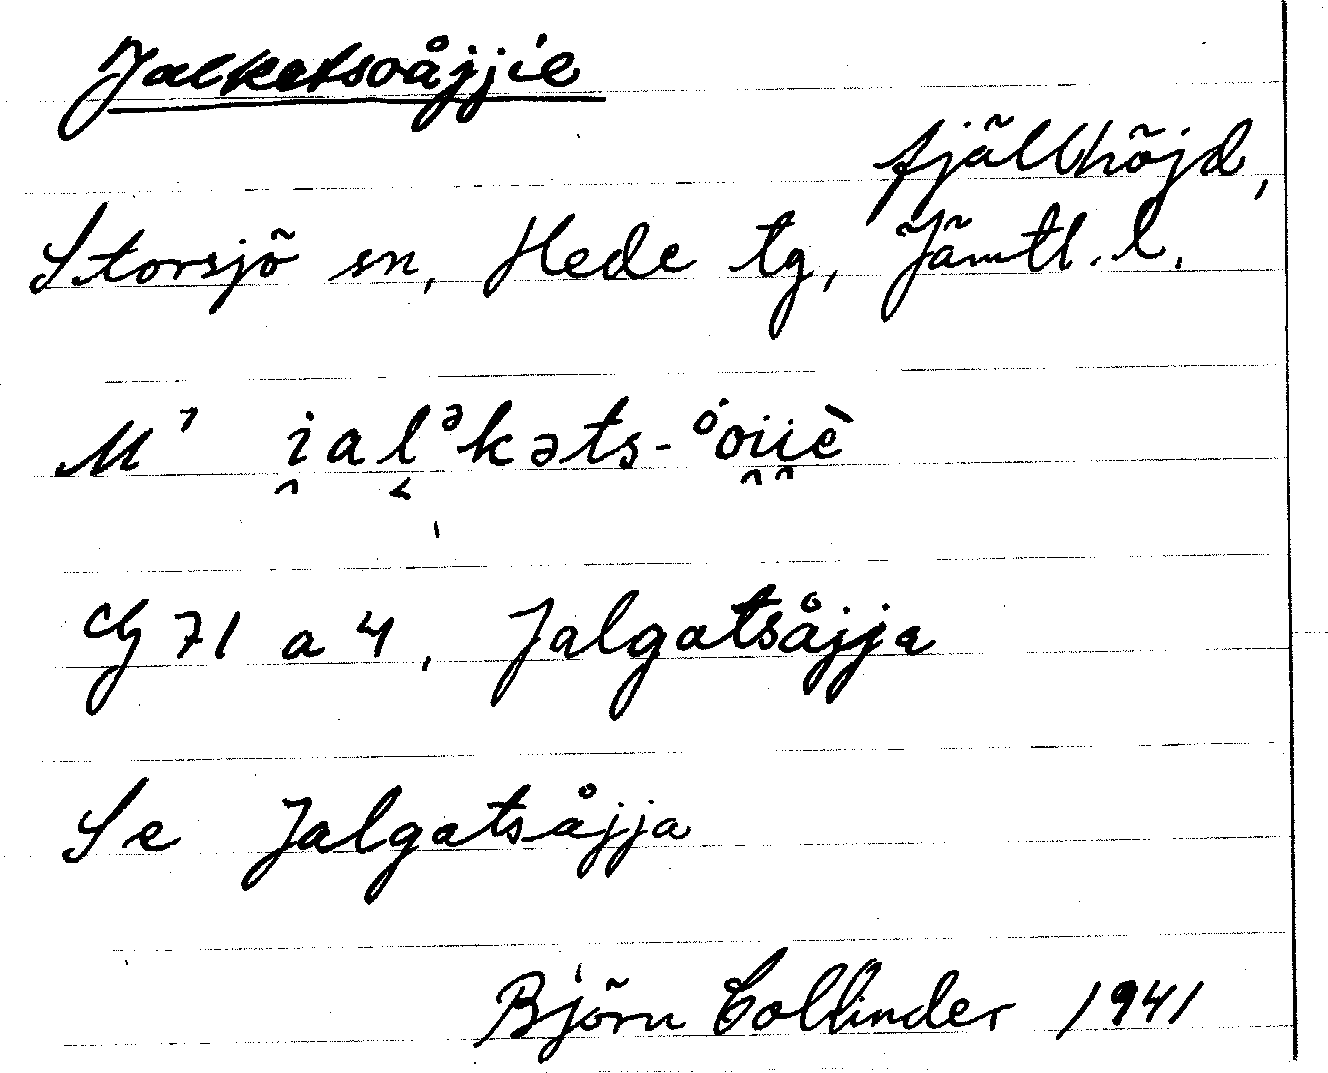 Jalketsoåjjie
fjällhöjd,
Storsjö sn, Hede tg, Jämtl. l.
M⁷ i̯al̬ᵊkəts-ůoi̯i̯è
G 71 a 4, Jalgatsåjja
Se Jalgatsåjja
Björn Collinder 1941